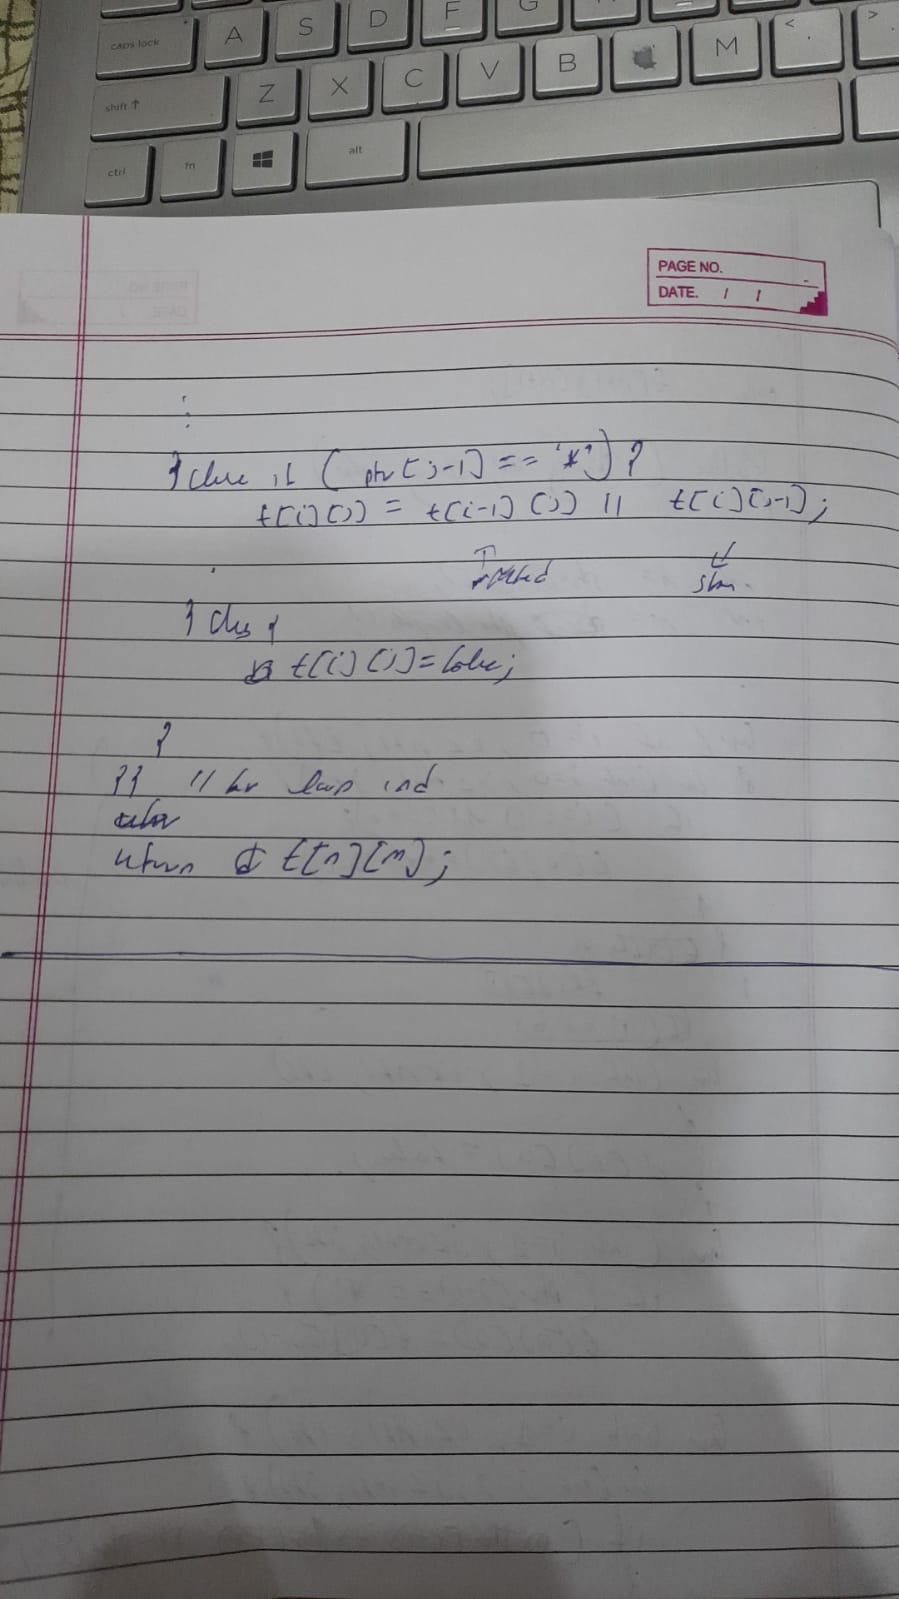 caps lock A S D F G
shift ↑ Z X C V B M < , >
ctrl fn alt
PAGE NO.
DATE. / /
:
} else if ( ptr[j-1] == '*') {
t[i][j] = t[i-1][j] || t[i][j-1];
} else {
t[i][j] = false;
}
}} // for loop end
return t[n][m];